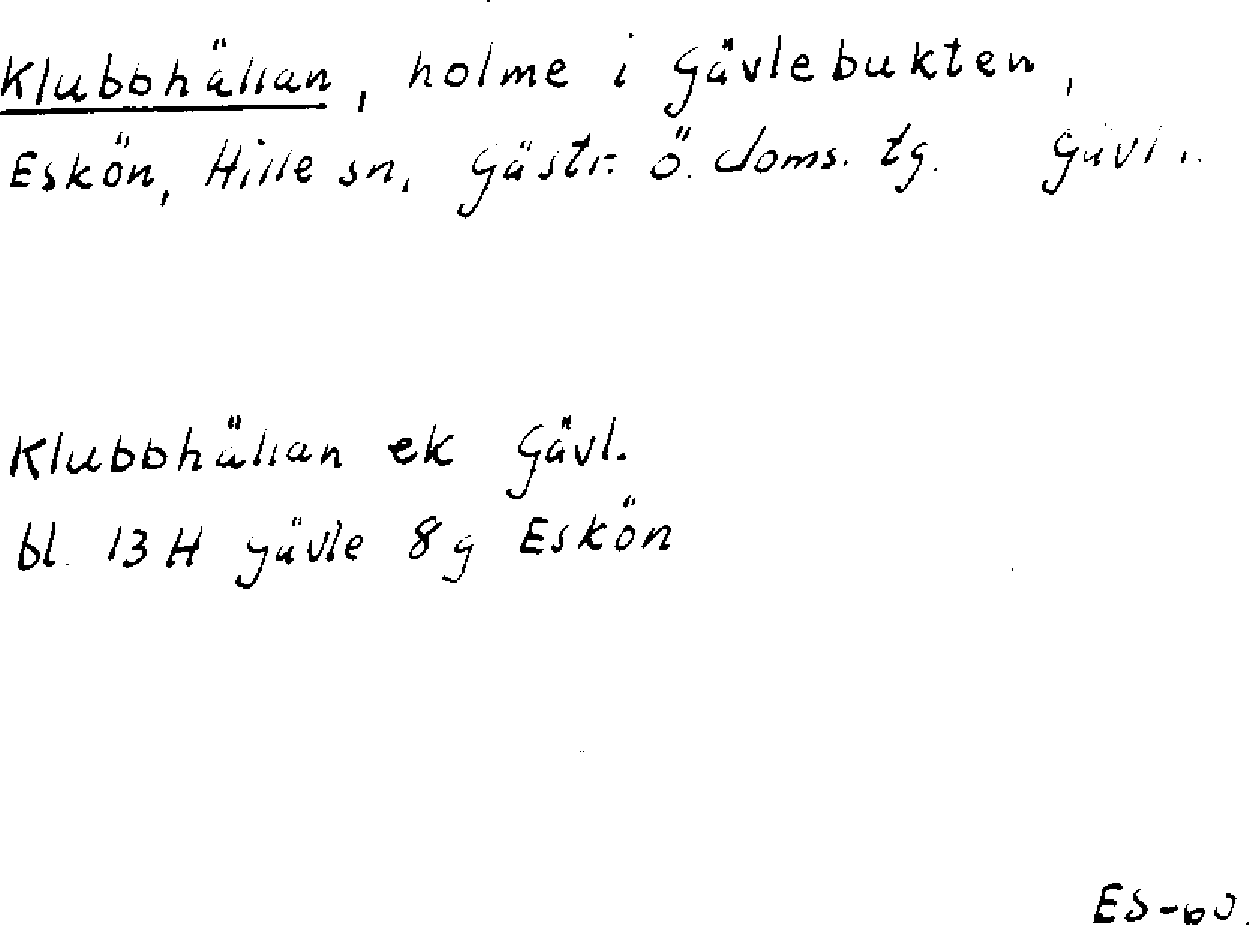 Klubbhällan, holme i Gävlebukten,
Eskön, Hille sn, Gästr. ö. doms. tg. Gävl.
Klubbhällan ek Gävl.
bl. 13 H Gävle 8 g Eskön